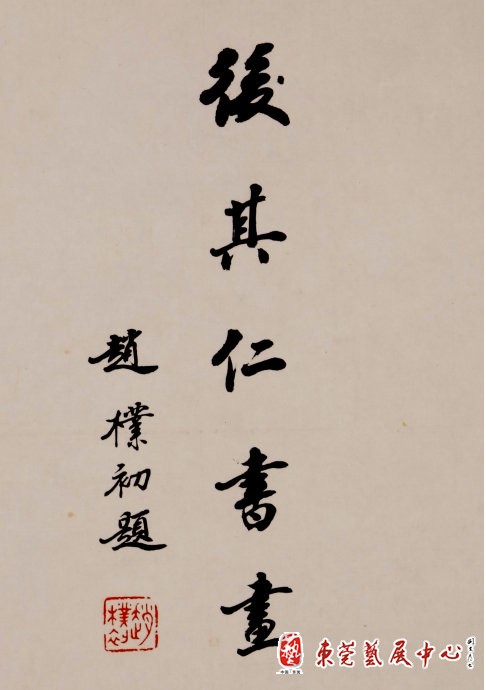 後其仁書畫
趙樸初題
趙樸初
東莞藝展中心